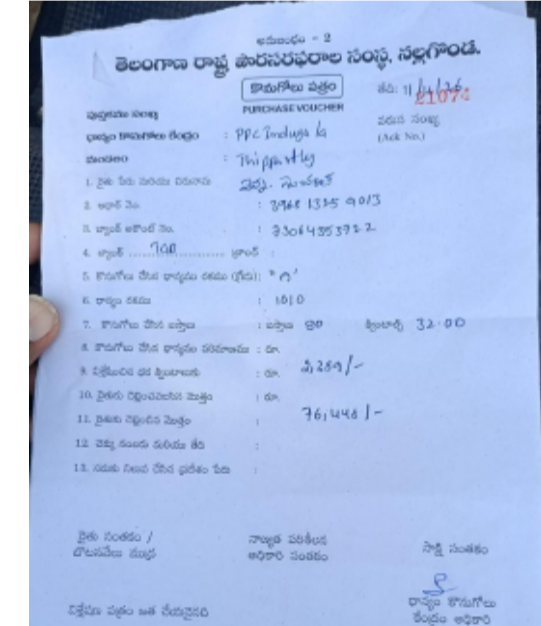 అనుబంధం - 2
తెలంగాణ రాష్ట్ర పౌరసరఫరాల సంస్థ, నల్లగొండ.
కొనుగోలు పత్రం
తేది: 11/
21074
PURCHASE VOUCHER
పుస్తకము సంఖ్య
వరుస సంఖ్య
ధాన్యం కొనుగోలు కేంద్రం : PPC Indugula
(Ack No.)
మండలం : Thipparthy
1. రైతు పేరు మరియు చిరునామ
2. ఆధార్ నెం. : 3968 1325 9013
3. బ్యాంక్ అకౌంట్ నెం. : 73064553722
4. బ్యాంక్ ............ బ్రాంచ్ :
5. కొనుగోలు చేసిన ధాన్యము రకము (గ్రేడు): "A"
6. ధాన్యం రకము : 1010
7. కొనుగోలు చేసిన బస్తాలు : బస్తాలు 80 క్వింటాళ్ళు 32.00
8. కొనుగోలు చేసిన ధాన్యము పరిమాణము : రూ.
9. నిర్ణయించిన ధర క్వింటాలుకు : రూ. 2,389/-
10. రైతుకు చెల్లించవలసిన మొత్తం : రూ.
11. రైతుకు చెల్లించిన మొత్తం : 76,448/-
12. చెక్కు నంబరు మరియు తేది :
13. సరుకు నిలువ చేసిన ప్రదేశం పేరు :
రైతు సంతకం /
వేలు ముద్ర
నాణ్యత పరిశీలన
అధికారి సంతకం
సాక్షి సంతకం
ధాన్యం కొనుగోలు
కేంద్రం అధికారి
విశ్లేషణ పత్రం జత చేయవైనది